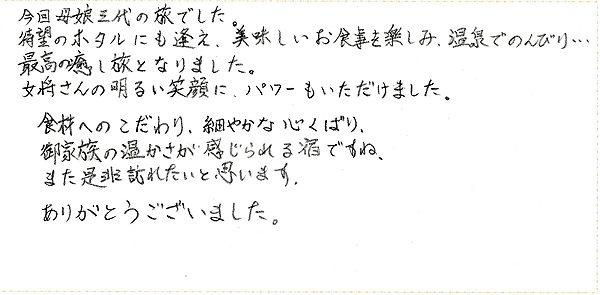 今回母娘三代の旅でした。
待望のホタルにも逢え、美味しいお食事を楽しみ、温泉でのんびり…
最高の癒し旅となりました。
女将さんの明るい笑顔に、パワーもいただけました。
食材へのこだわり、細やかな心くばり、
御家族の温かさが感じられる宿ですね、
また是非訪れたいと思います。
ありがとうございました。